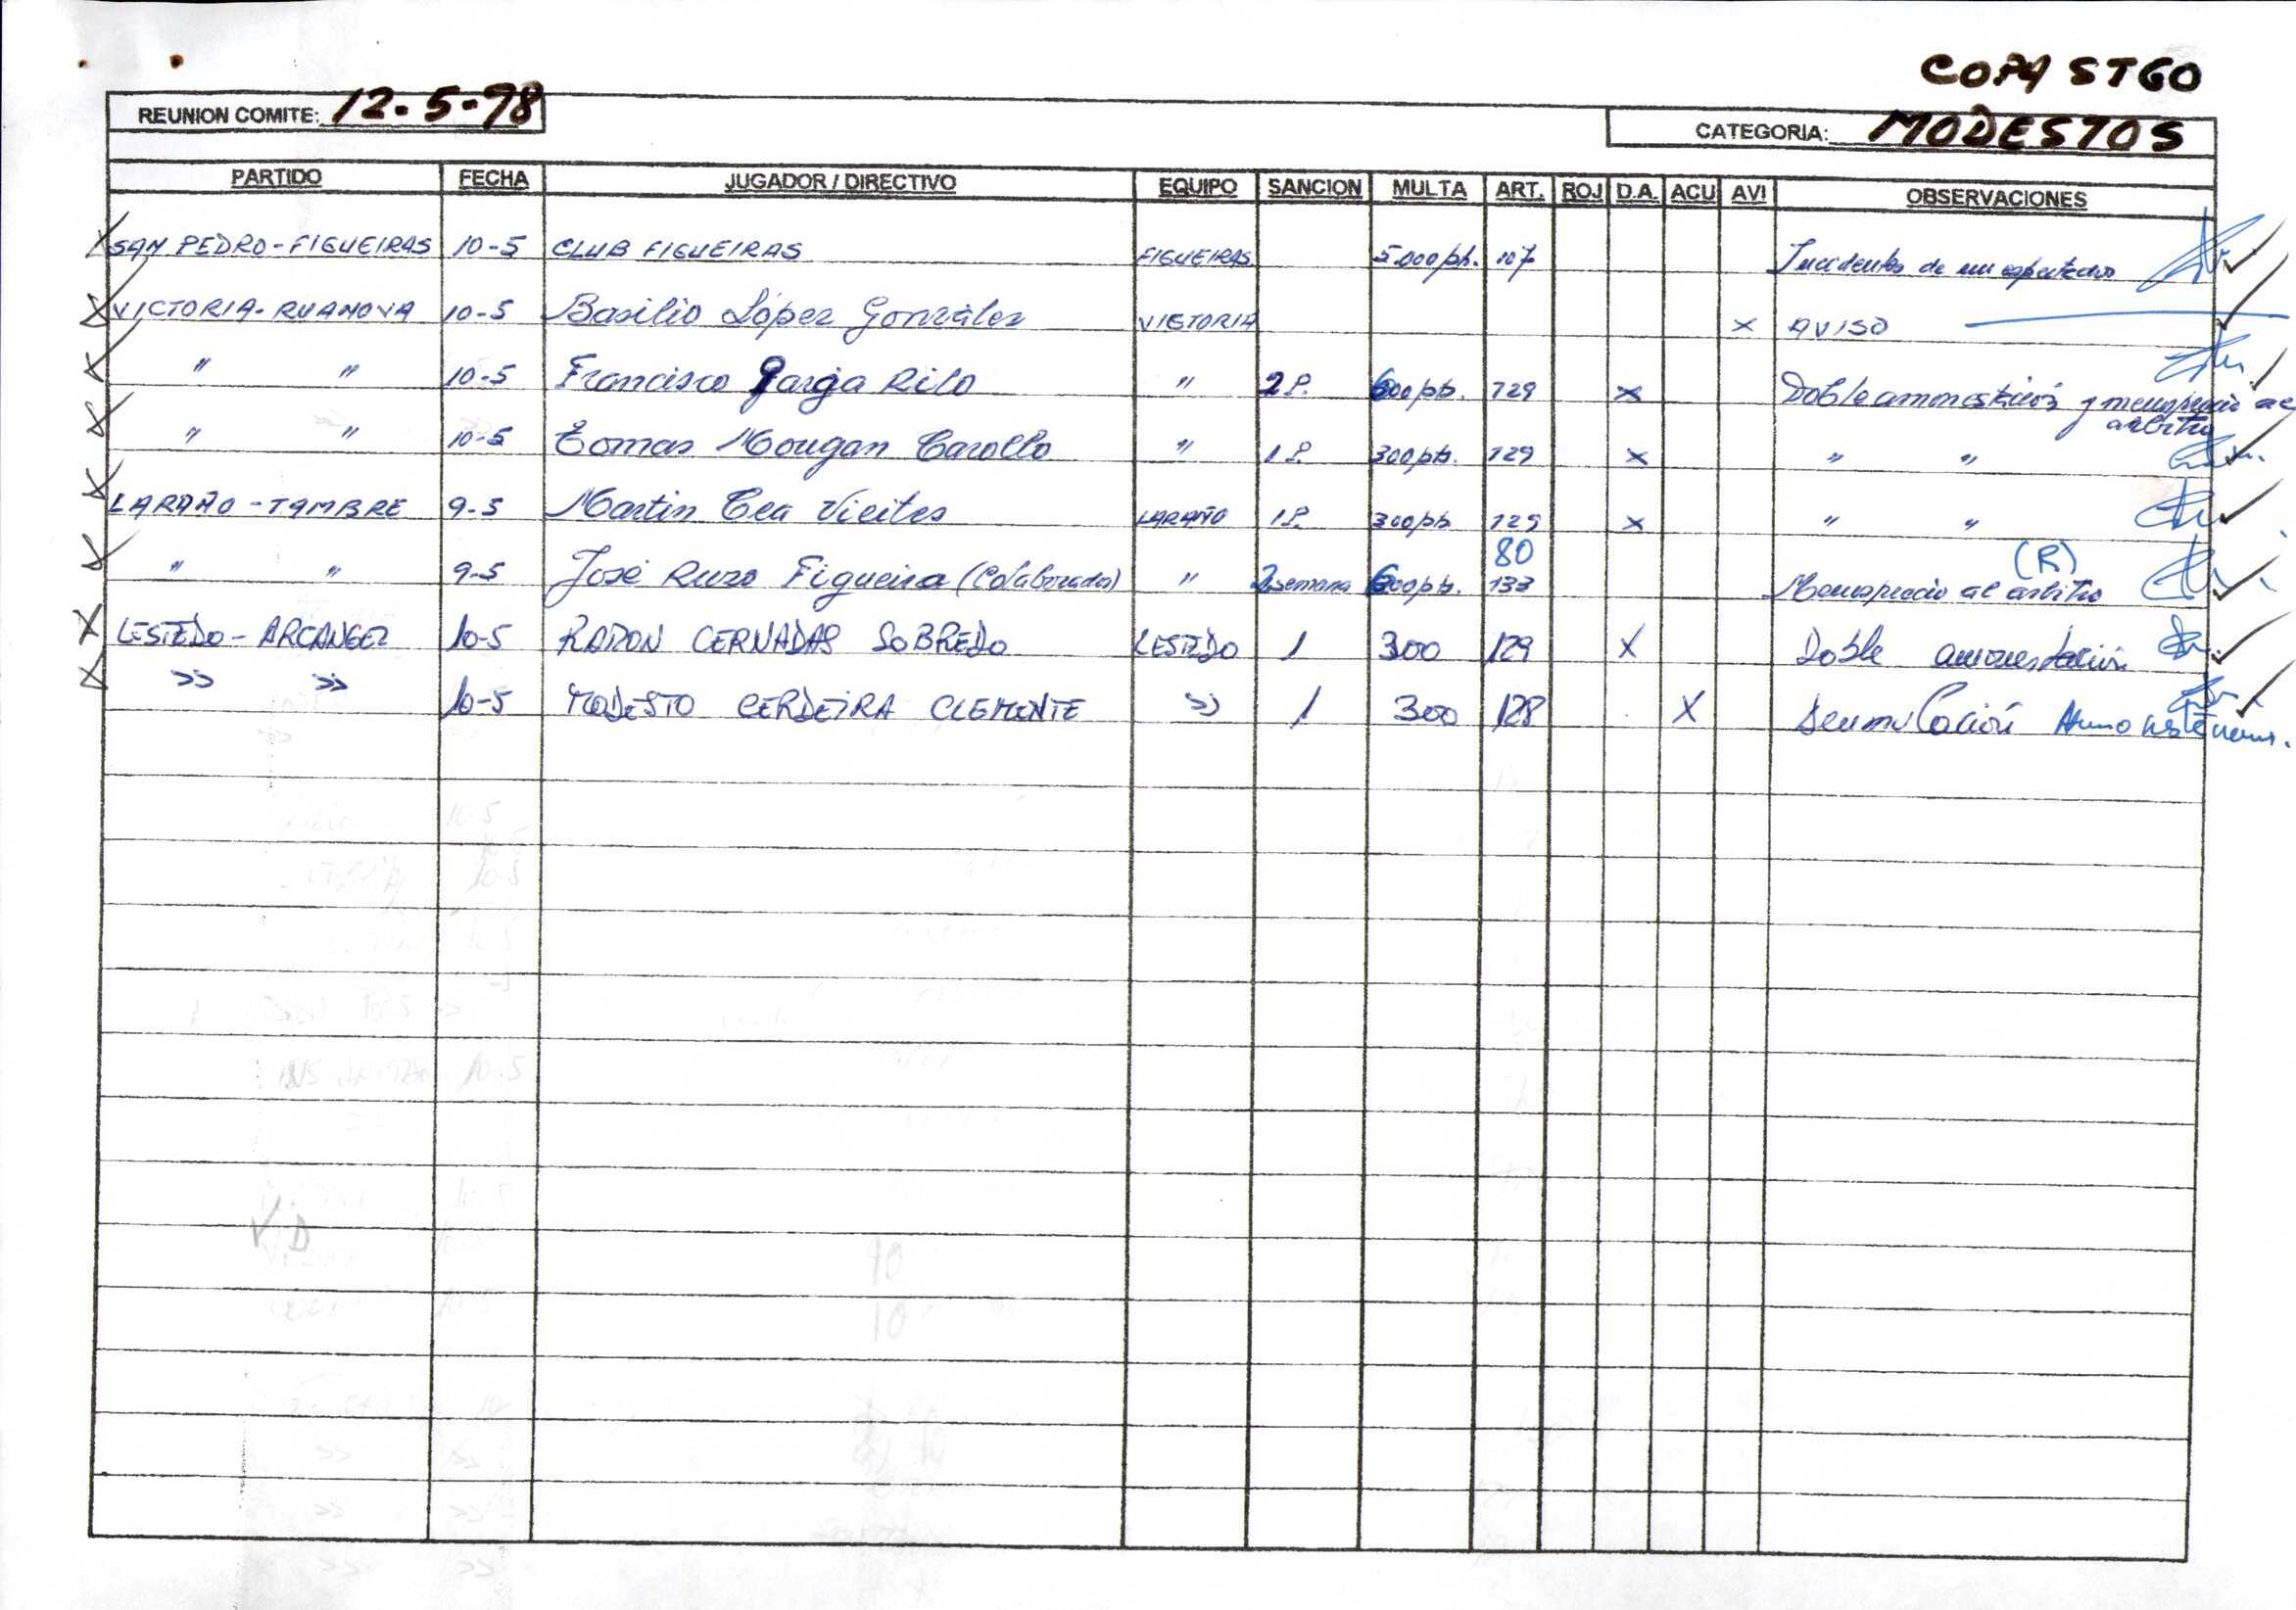 COPA STGO
REUNION COMITE: 12-5-98
CATEGORIA: MODESTOS
PARTIDO FECHA JUGADOR / DIRECTIVO EQUIPO SANCION MULTA ART. ROJ D.A. ACU AVI OBSERVACIONES
X SAN PEDRO - FIGUEIRAS 10-5 CLUB FIGUEIRAS FIGUEIRAS 5.000 pts. 107 Incidentes de un espectador
X VICTORIA - RUANOVA 10-5 Basilio López González VICTORIA x AVISO
X " " 10-5 Francisco Rilo " 2 P. 600 pts. 129 x Doble amonestación y menosprecio al
arbitro
X " " 10-5 Tomas Mougan Carollo " 1 P. 300 pts. 129 x " "
X LARAÑO - TAMBRE 9-5 Martin Cea Vieites LARAÑO 1 P. 300 pts 129 x " "
80 (R)
X " " 9-5 José Ruzo Figueira (Colaborador) " 2 semana 600 pts. 133 Menosprecio al arbitro
X LESTEDO - ARCANGEL 10-5 RAMON CERNADAS SOBREDO LESTEDO 1 300 129 X Doble amonestación
X » » 10-5 MODESTO CERDEIRA CLEMENTE » 1 300 128 X Acumulación
V.D